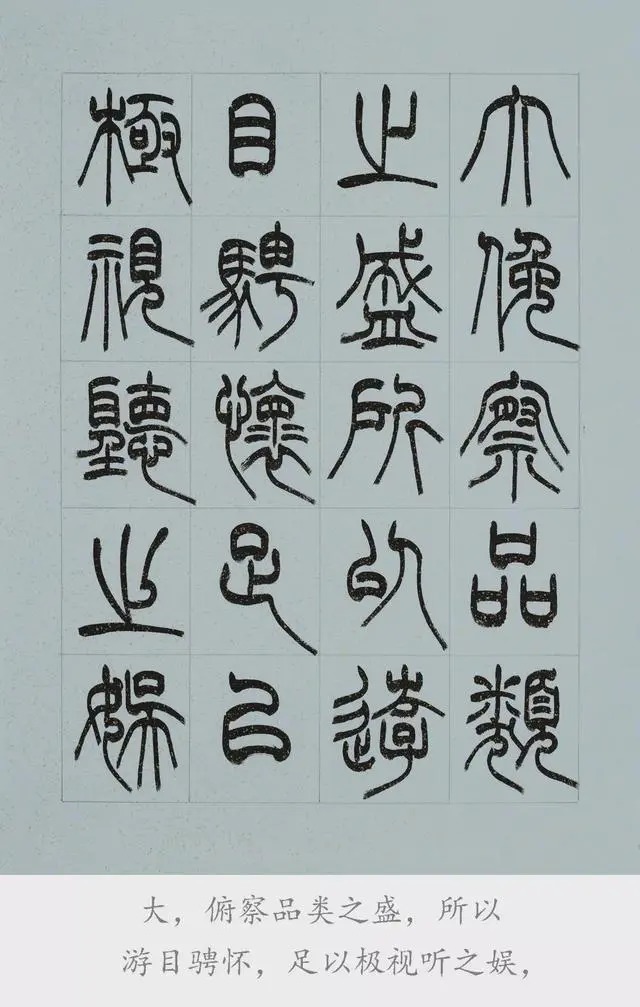 大俛察品類
之盛所以遊
目騁懷足以
極視聽之娛
大，俯察品类之盛，所以
游目骋怀，足以极视听之娱，